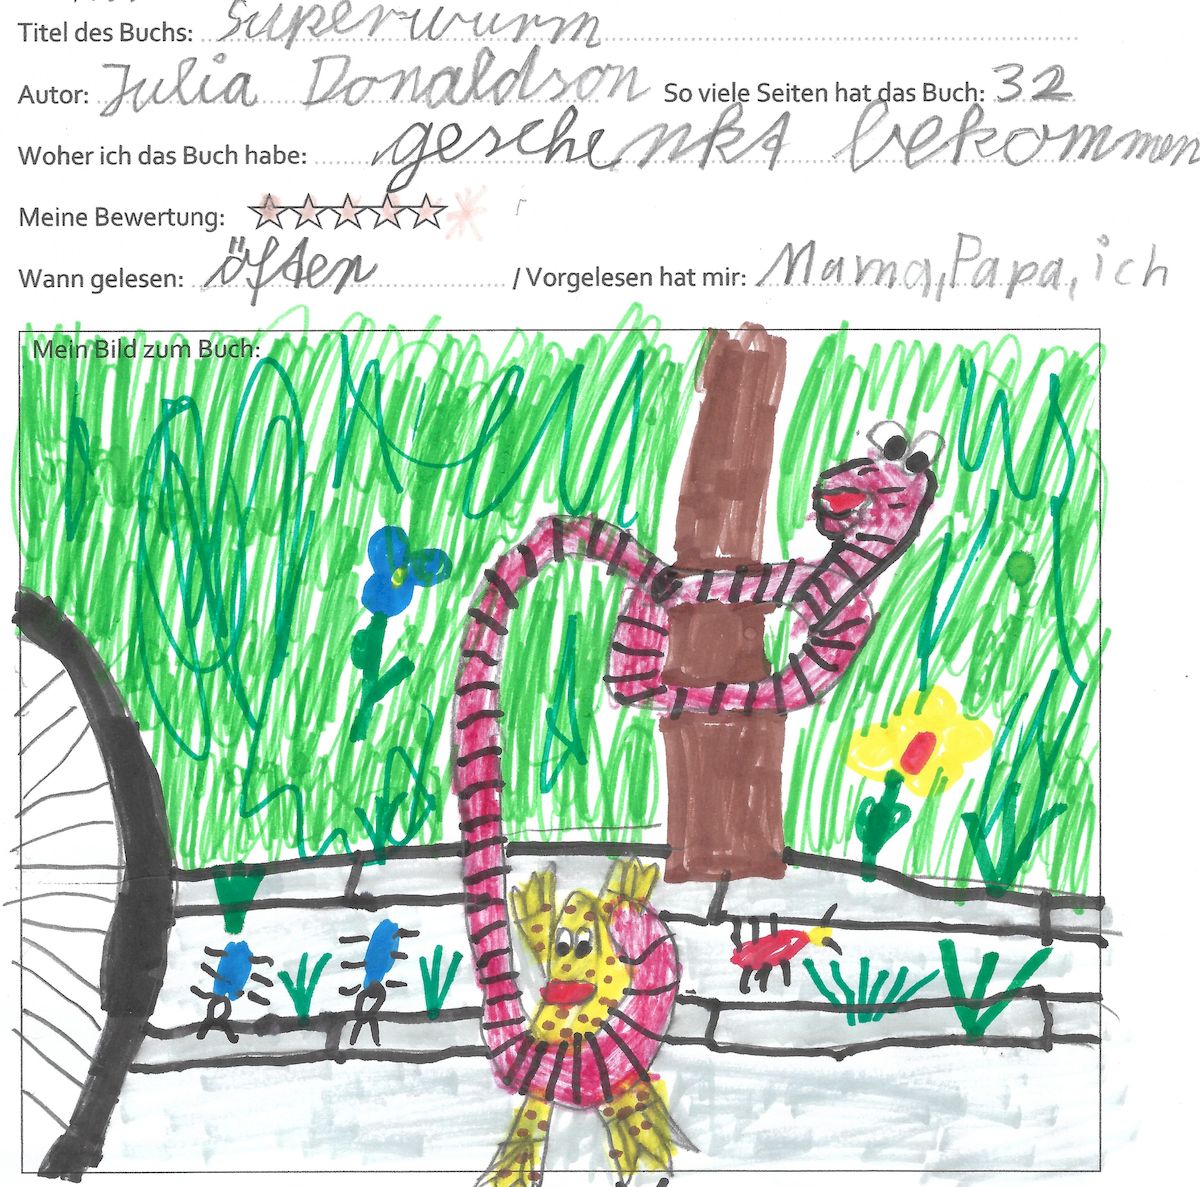 Titel des Buchs: Superwurm
Autor: Julia Donaldson So viele Seiten hat das Buch: 32
Woher ich das Buch habe: geschenkt bekommen
Meine Bewertung:
Wann gelesen: öfter / Vorgelesen hat mir: Mama, Papa, ich
Mein Bild zum Buch: